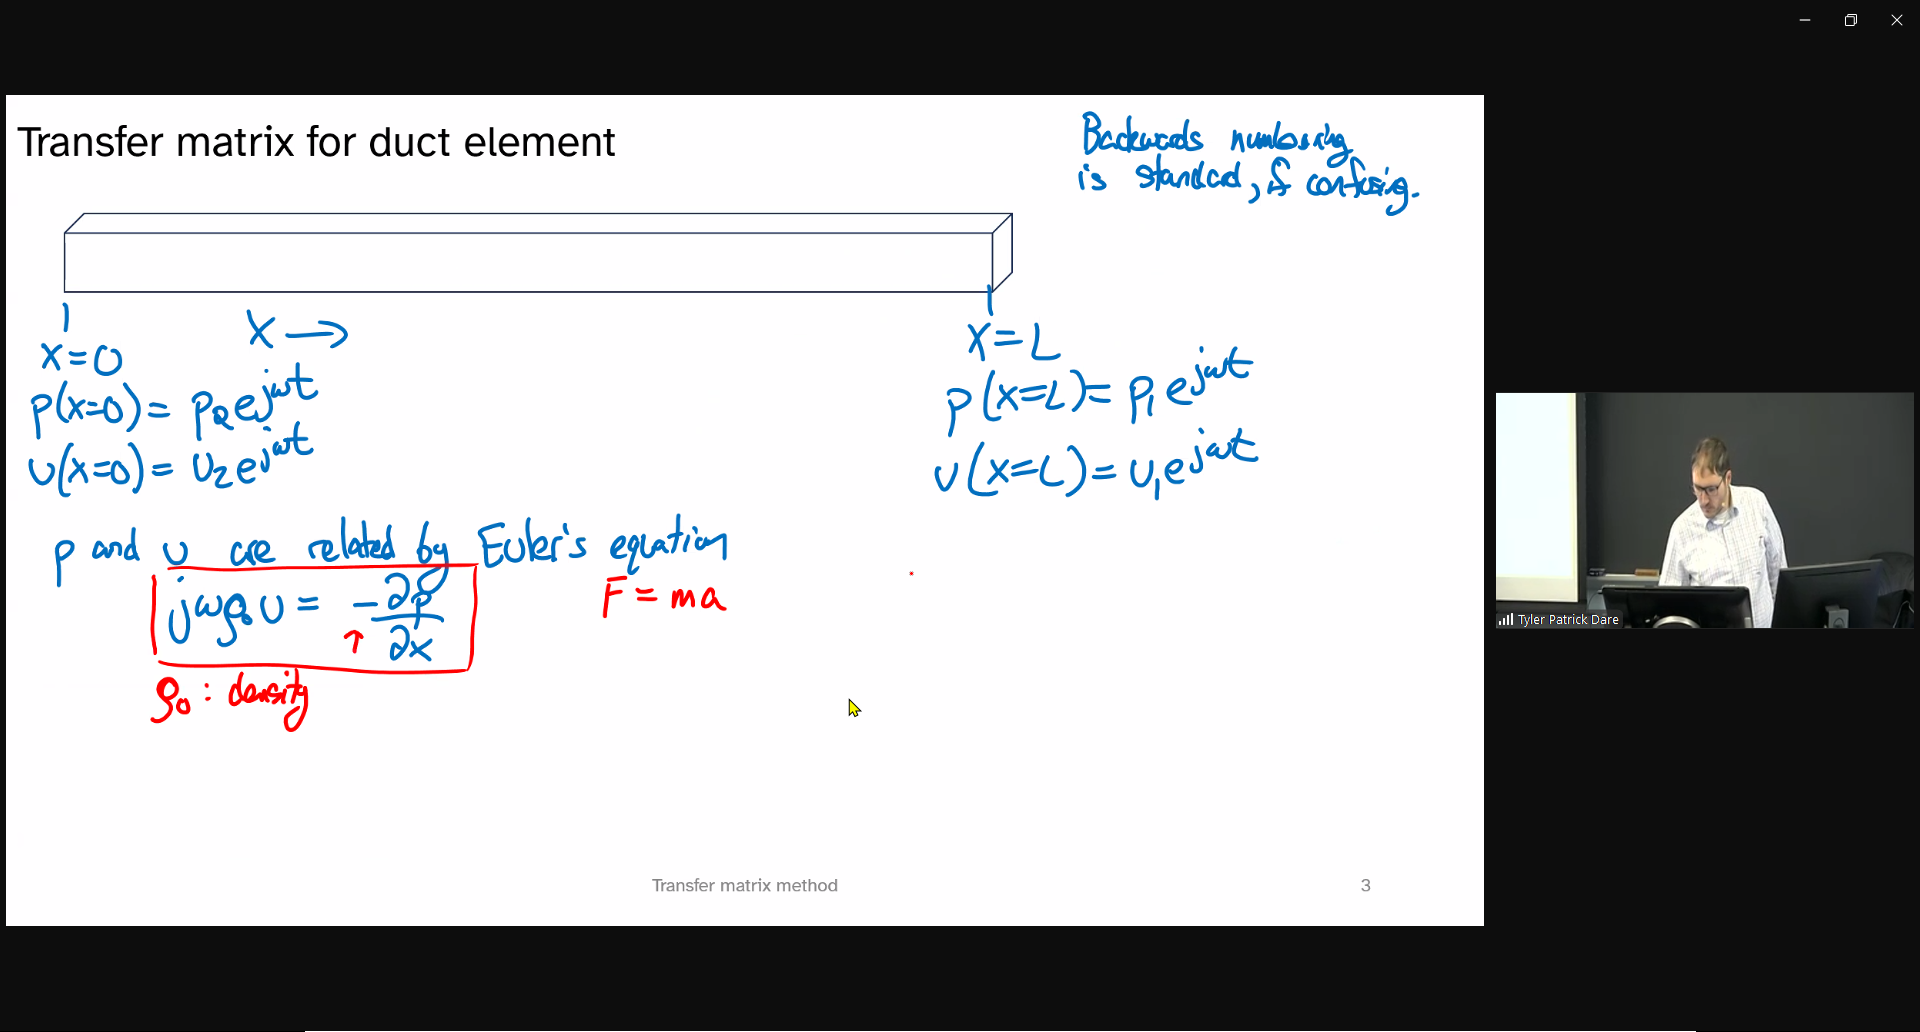 Transfer matrix for duct element
Backwards numbering
is standard, if confusing.
x=0
x →
x=L
p(x=0) = p₂e^jωt
p(x=L) = p₁e^jωt
u(x=0) = u₂e^jωt
u(x=L) = u₁e^jωt
p and u are related by Euler's equation
jωρ₀u = -∂p/∂x
F = ma
↑
ρ₀ : density
Transfer matrix method
3
Tyler Patrick Dare